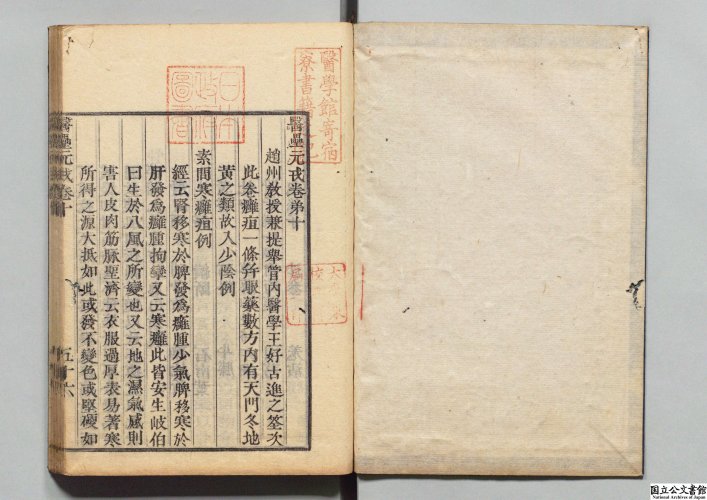 醫壘元戎卷第十
趙州敎授兼提舉管內醫學王好古進之筌次
此卷癰疽一條幷服藥數方內有天門冬地
黃之類故入少陰例
素問寒癰疽例
經云腎移寒於脾發爲癰腫少氣脾移寒於
肝發爲癰腫拘攣又云寒癰此皆安生岐伯
曰生於八風之所變也又云地之濕氣感則
害人皮肉筋脉聖濟云衣服過厚表易著寒
所得之源大抵如此或發不變色或堅硬如
醫壘元戎卷十
五十六
醫學館寄宿
寮書籍之記
日本
政府
圖書
国立公文書館
National Archives of Japan